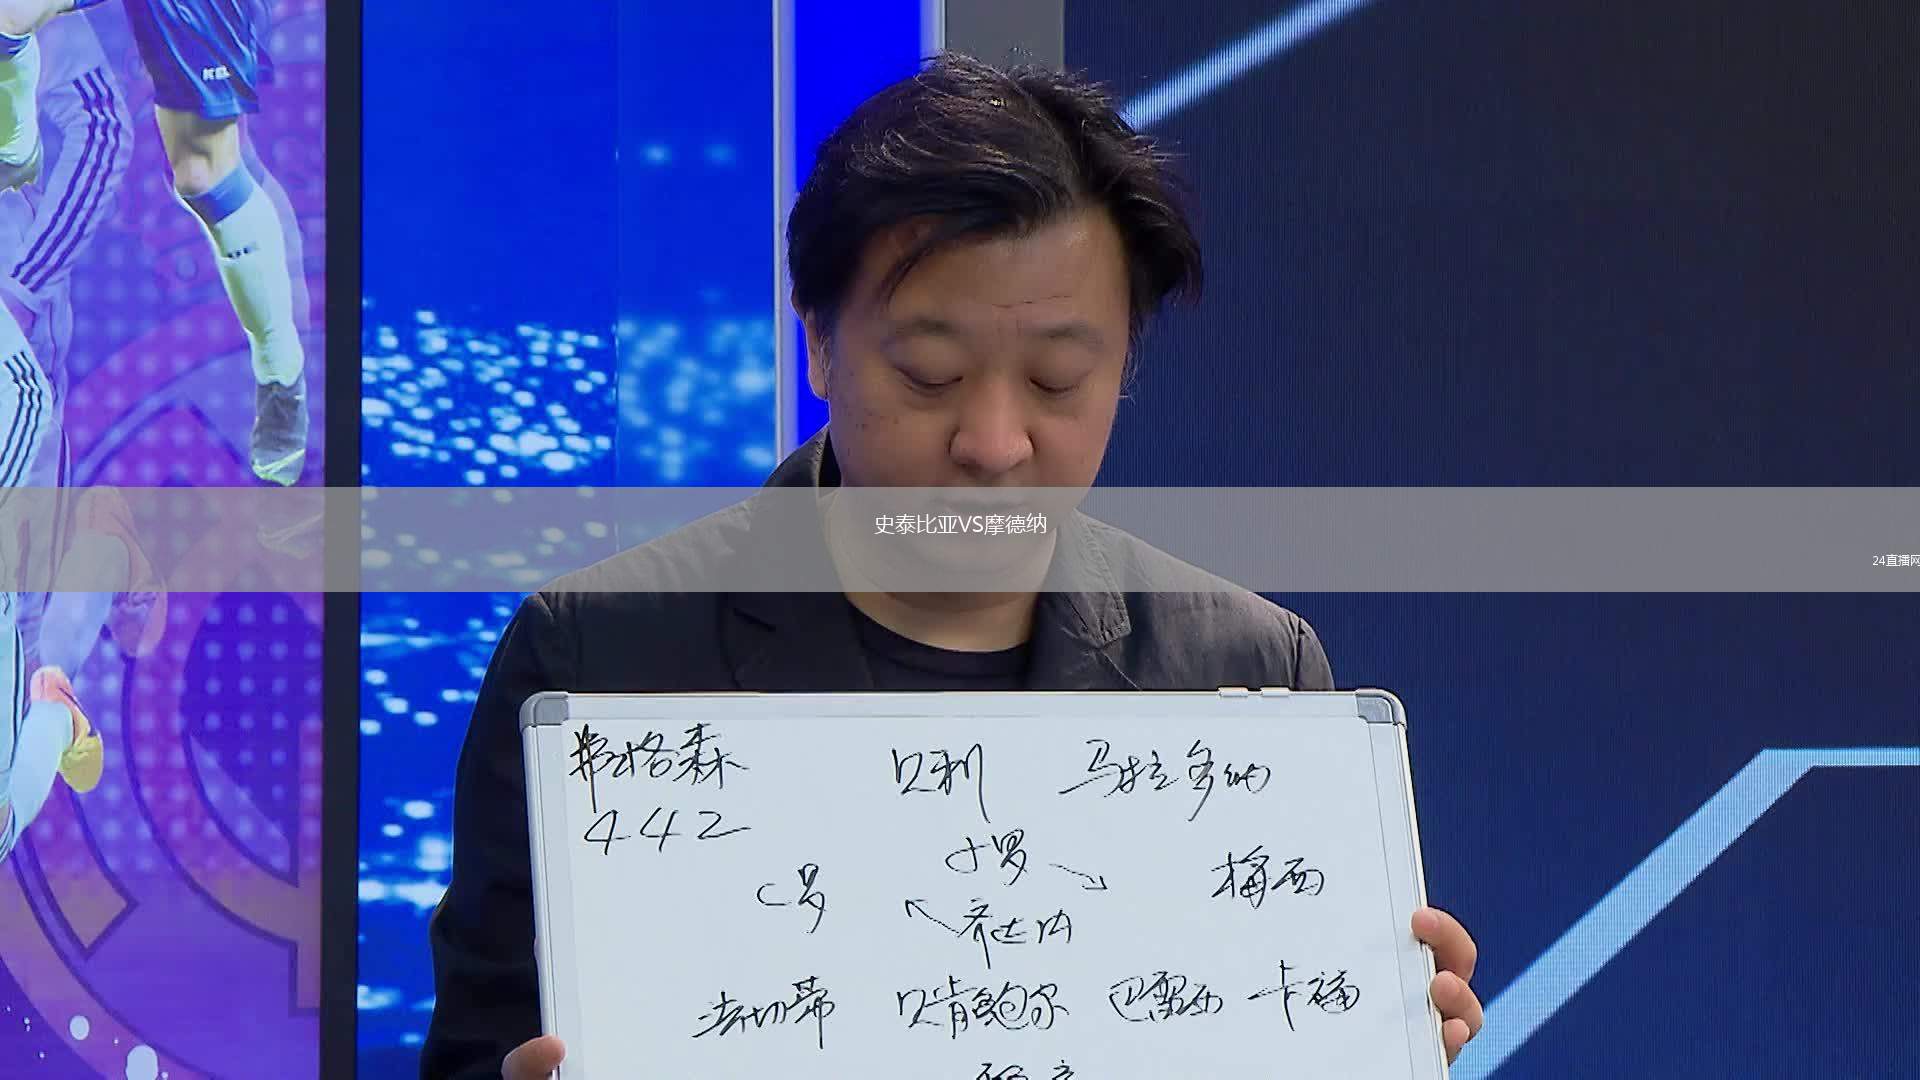 史泰比亚VS摩德纳
24直播网
弗格森 贝利 马拉多纳
442
小罗
C罗 梅西
齐达内
法切蒂 贝肯鲍尔 巴雷西 卡福